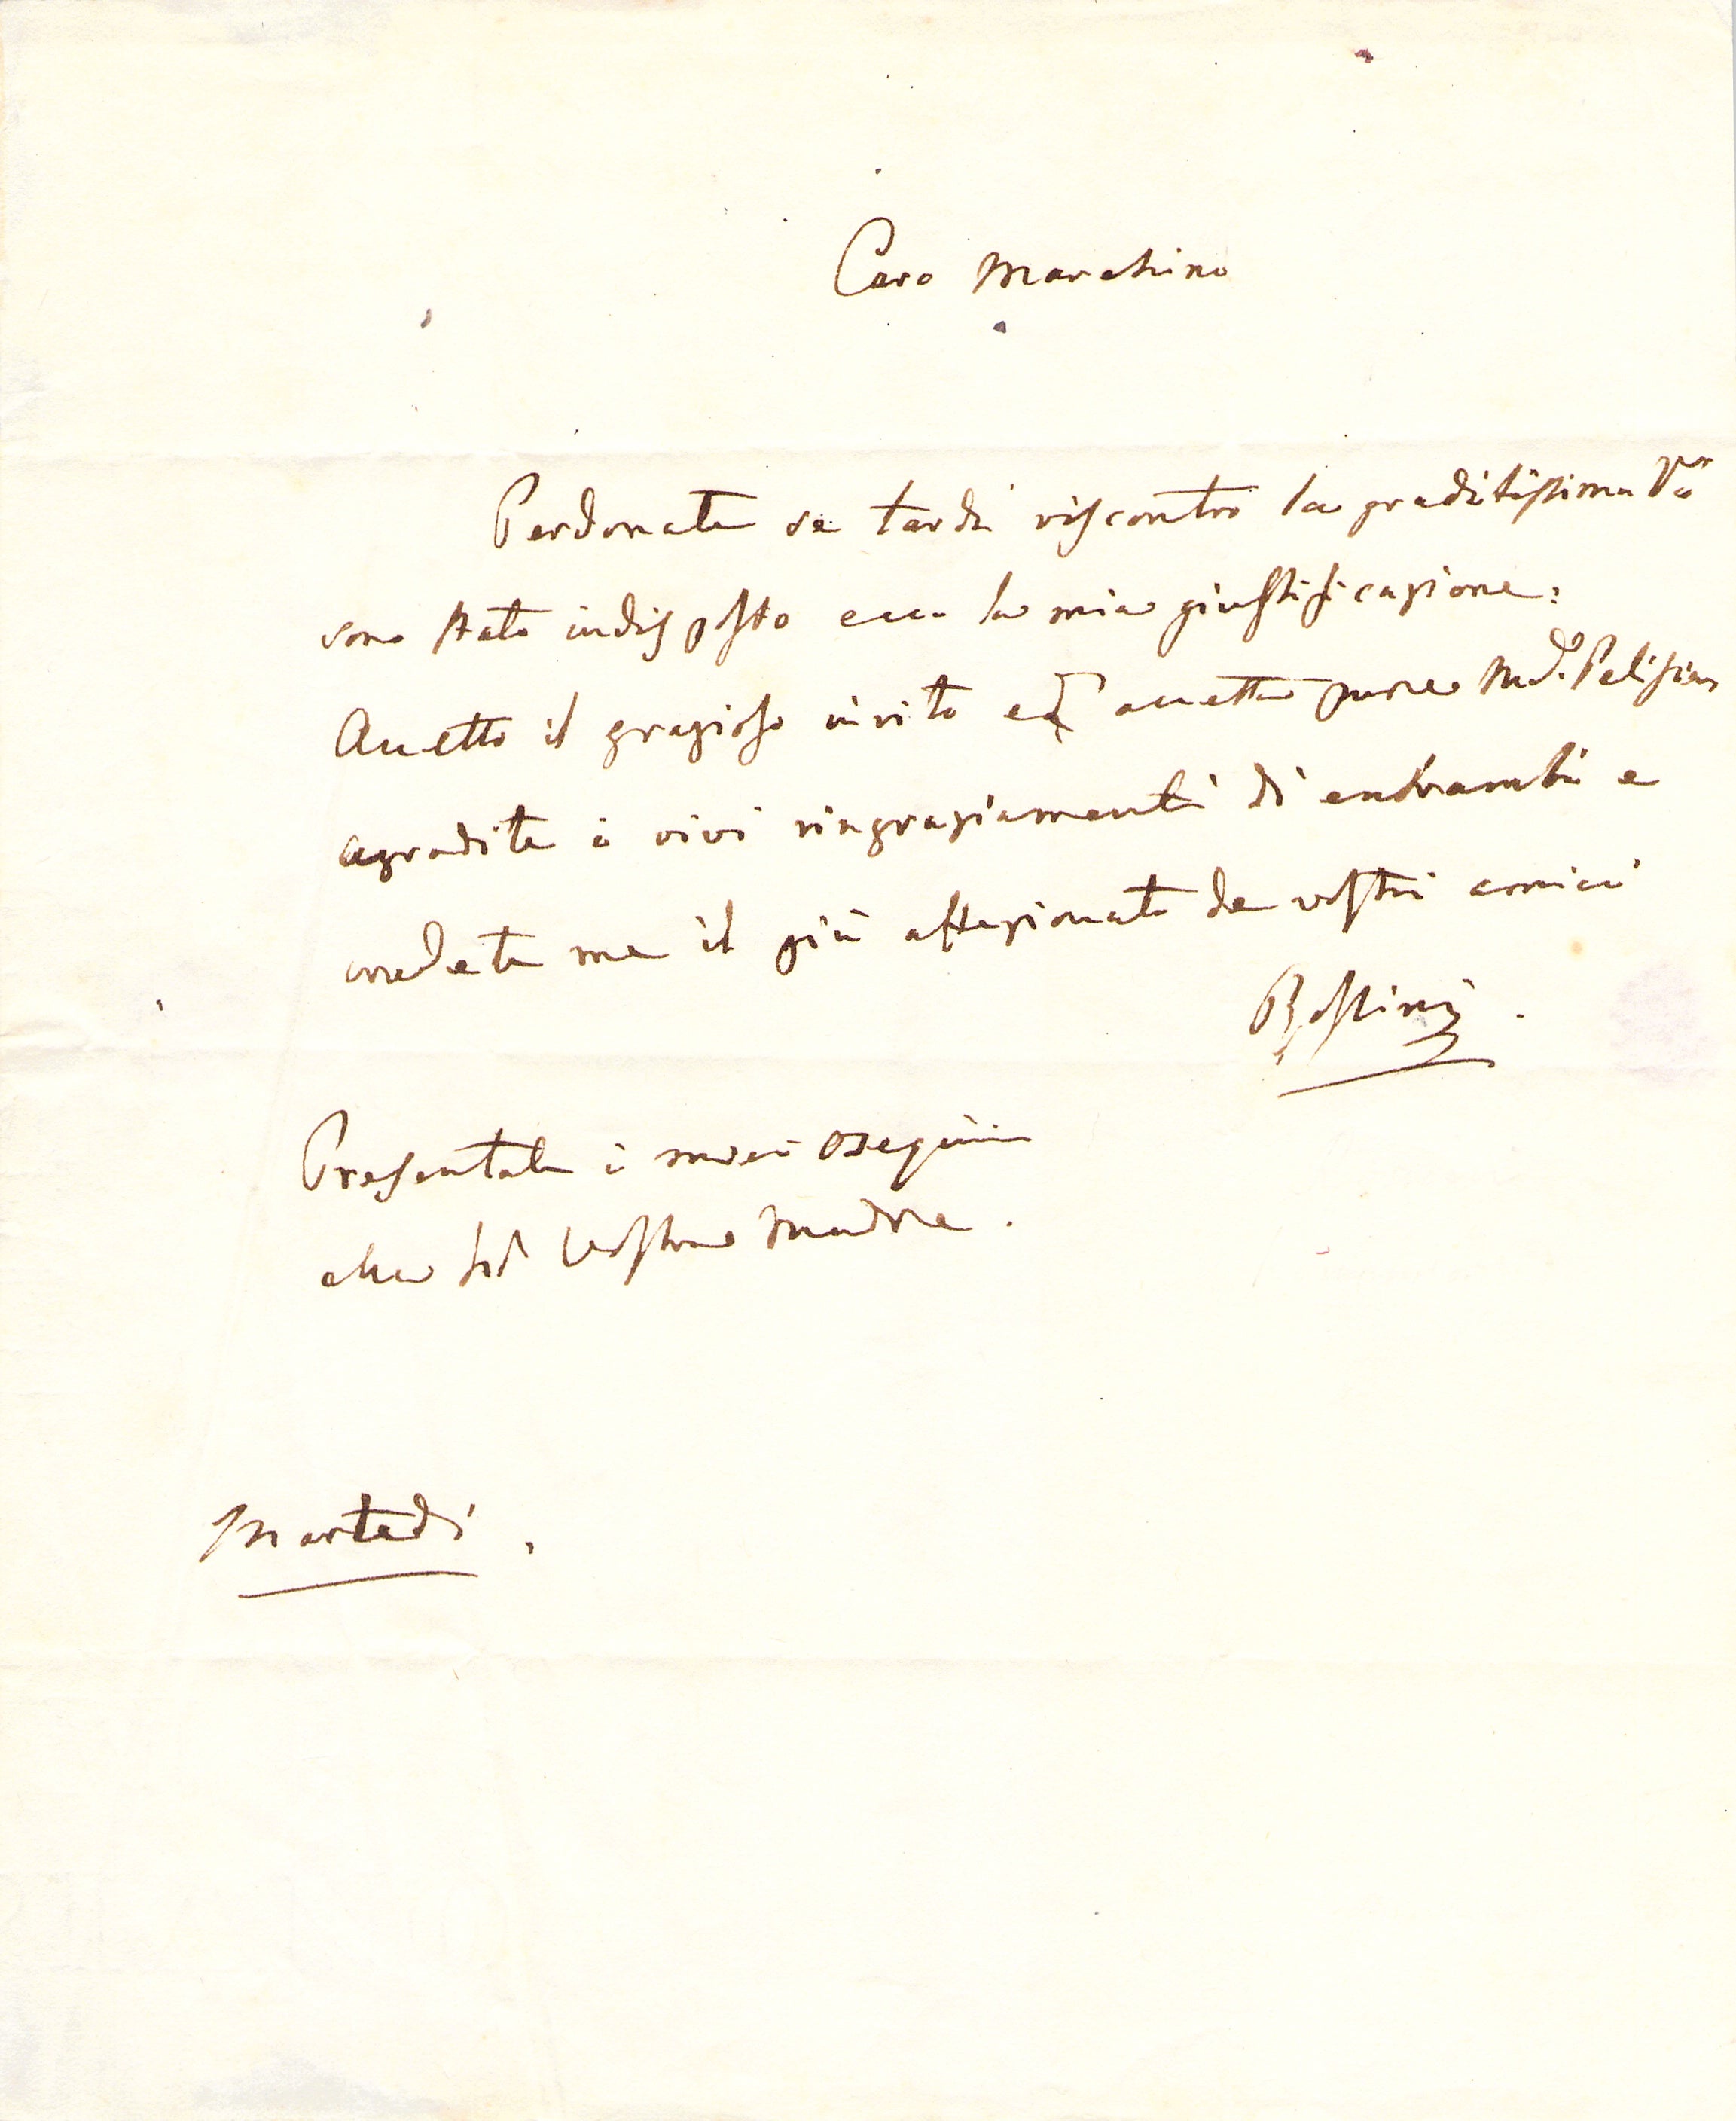 Caro Marchino
Perdonate se tardi riscontro la graditissima Vª
sono stato indisposto ecco la mia giustificazione:
Accetto il grazioso invito ed accetta pure Mdᵉ. Pelisier
agradite i vivi ringraziamenti di entrambi e
credete me il più affezionato de vostri amici
Rossini.
Presentate i miei ossequi
alla Vostra Madre.
Martedì.